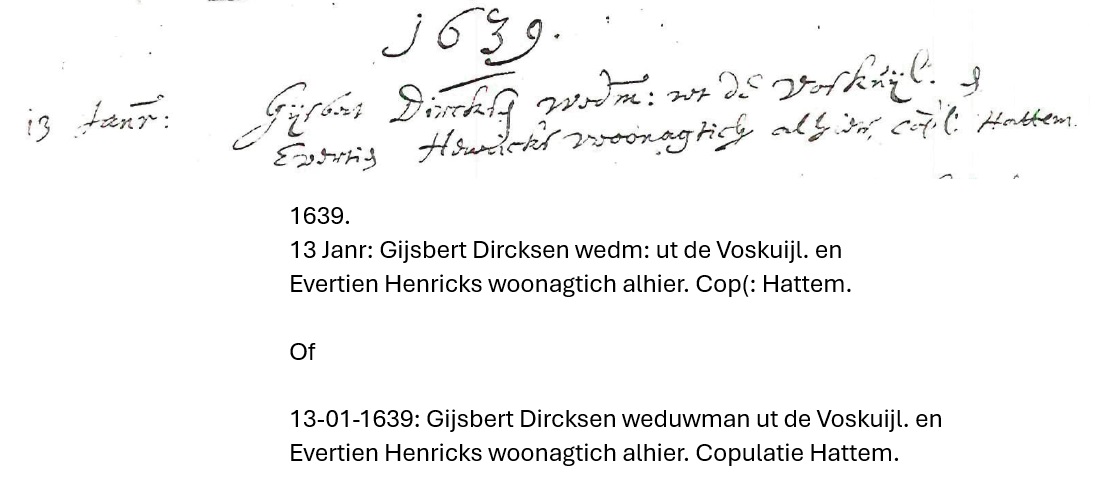 1639.
13 Janr: Gijsbert Dircksen wedm: ut de Voskuijl. en
Evertien Henricks woonagtich alhier, cop(: Hattem.
1639.
13 Janr: Gijsbert Dircksen wedm: ut de Voskuijl. en
Evertien Henricks woonagtich alhier. Cop(: Hattem.
Of
13-01-1639: Gijsbert Dircksen weduwman ut de Voskuijl. en
Evertien Henricks woonagtich alhier. Copulatie Hattem.